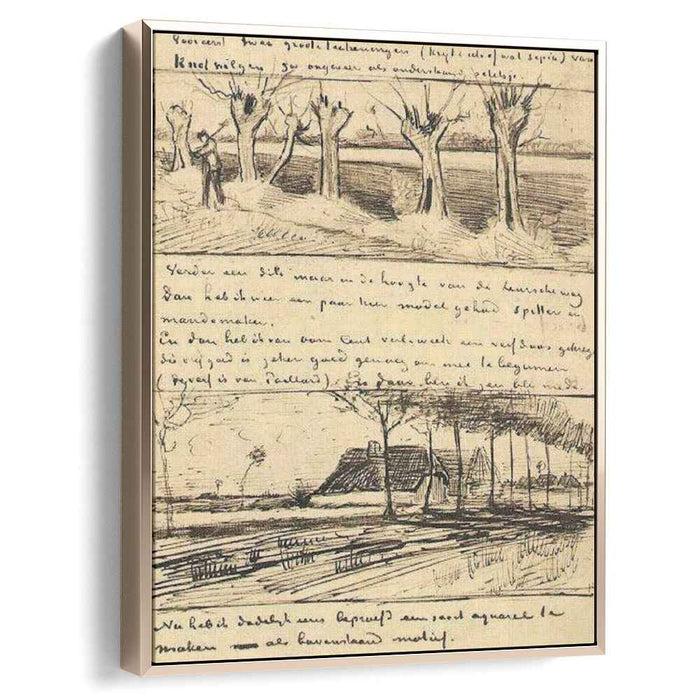 Vooreerst twee groote teekeningen (krijt en of wat sepia) van
Knotwilgen zoo ongeveer als onderstaand schetsje.
Verder een dito maar in de hoogte van de Leurscheweg
Dan heb ik weer een paar keer model gehad spitter en
mandemaker.
En dan heb ik van oom Cent verl. week een verfdoos gekreg
die vrij goed is zeker goed genoeg om mee te beginnen
(de verf is van Paillard). En daar ben ik zeer blij mede.
Nu heb ik dadelijk eens beproefd een soort aquarel te
maken als bovenstaand motief.